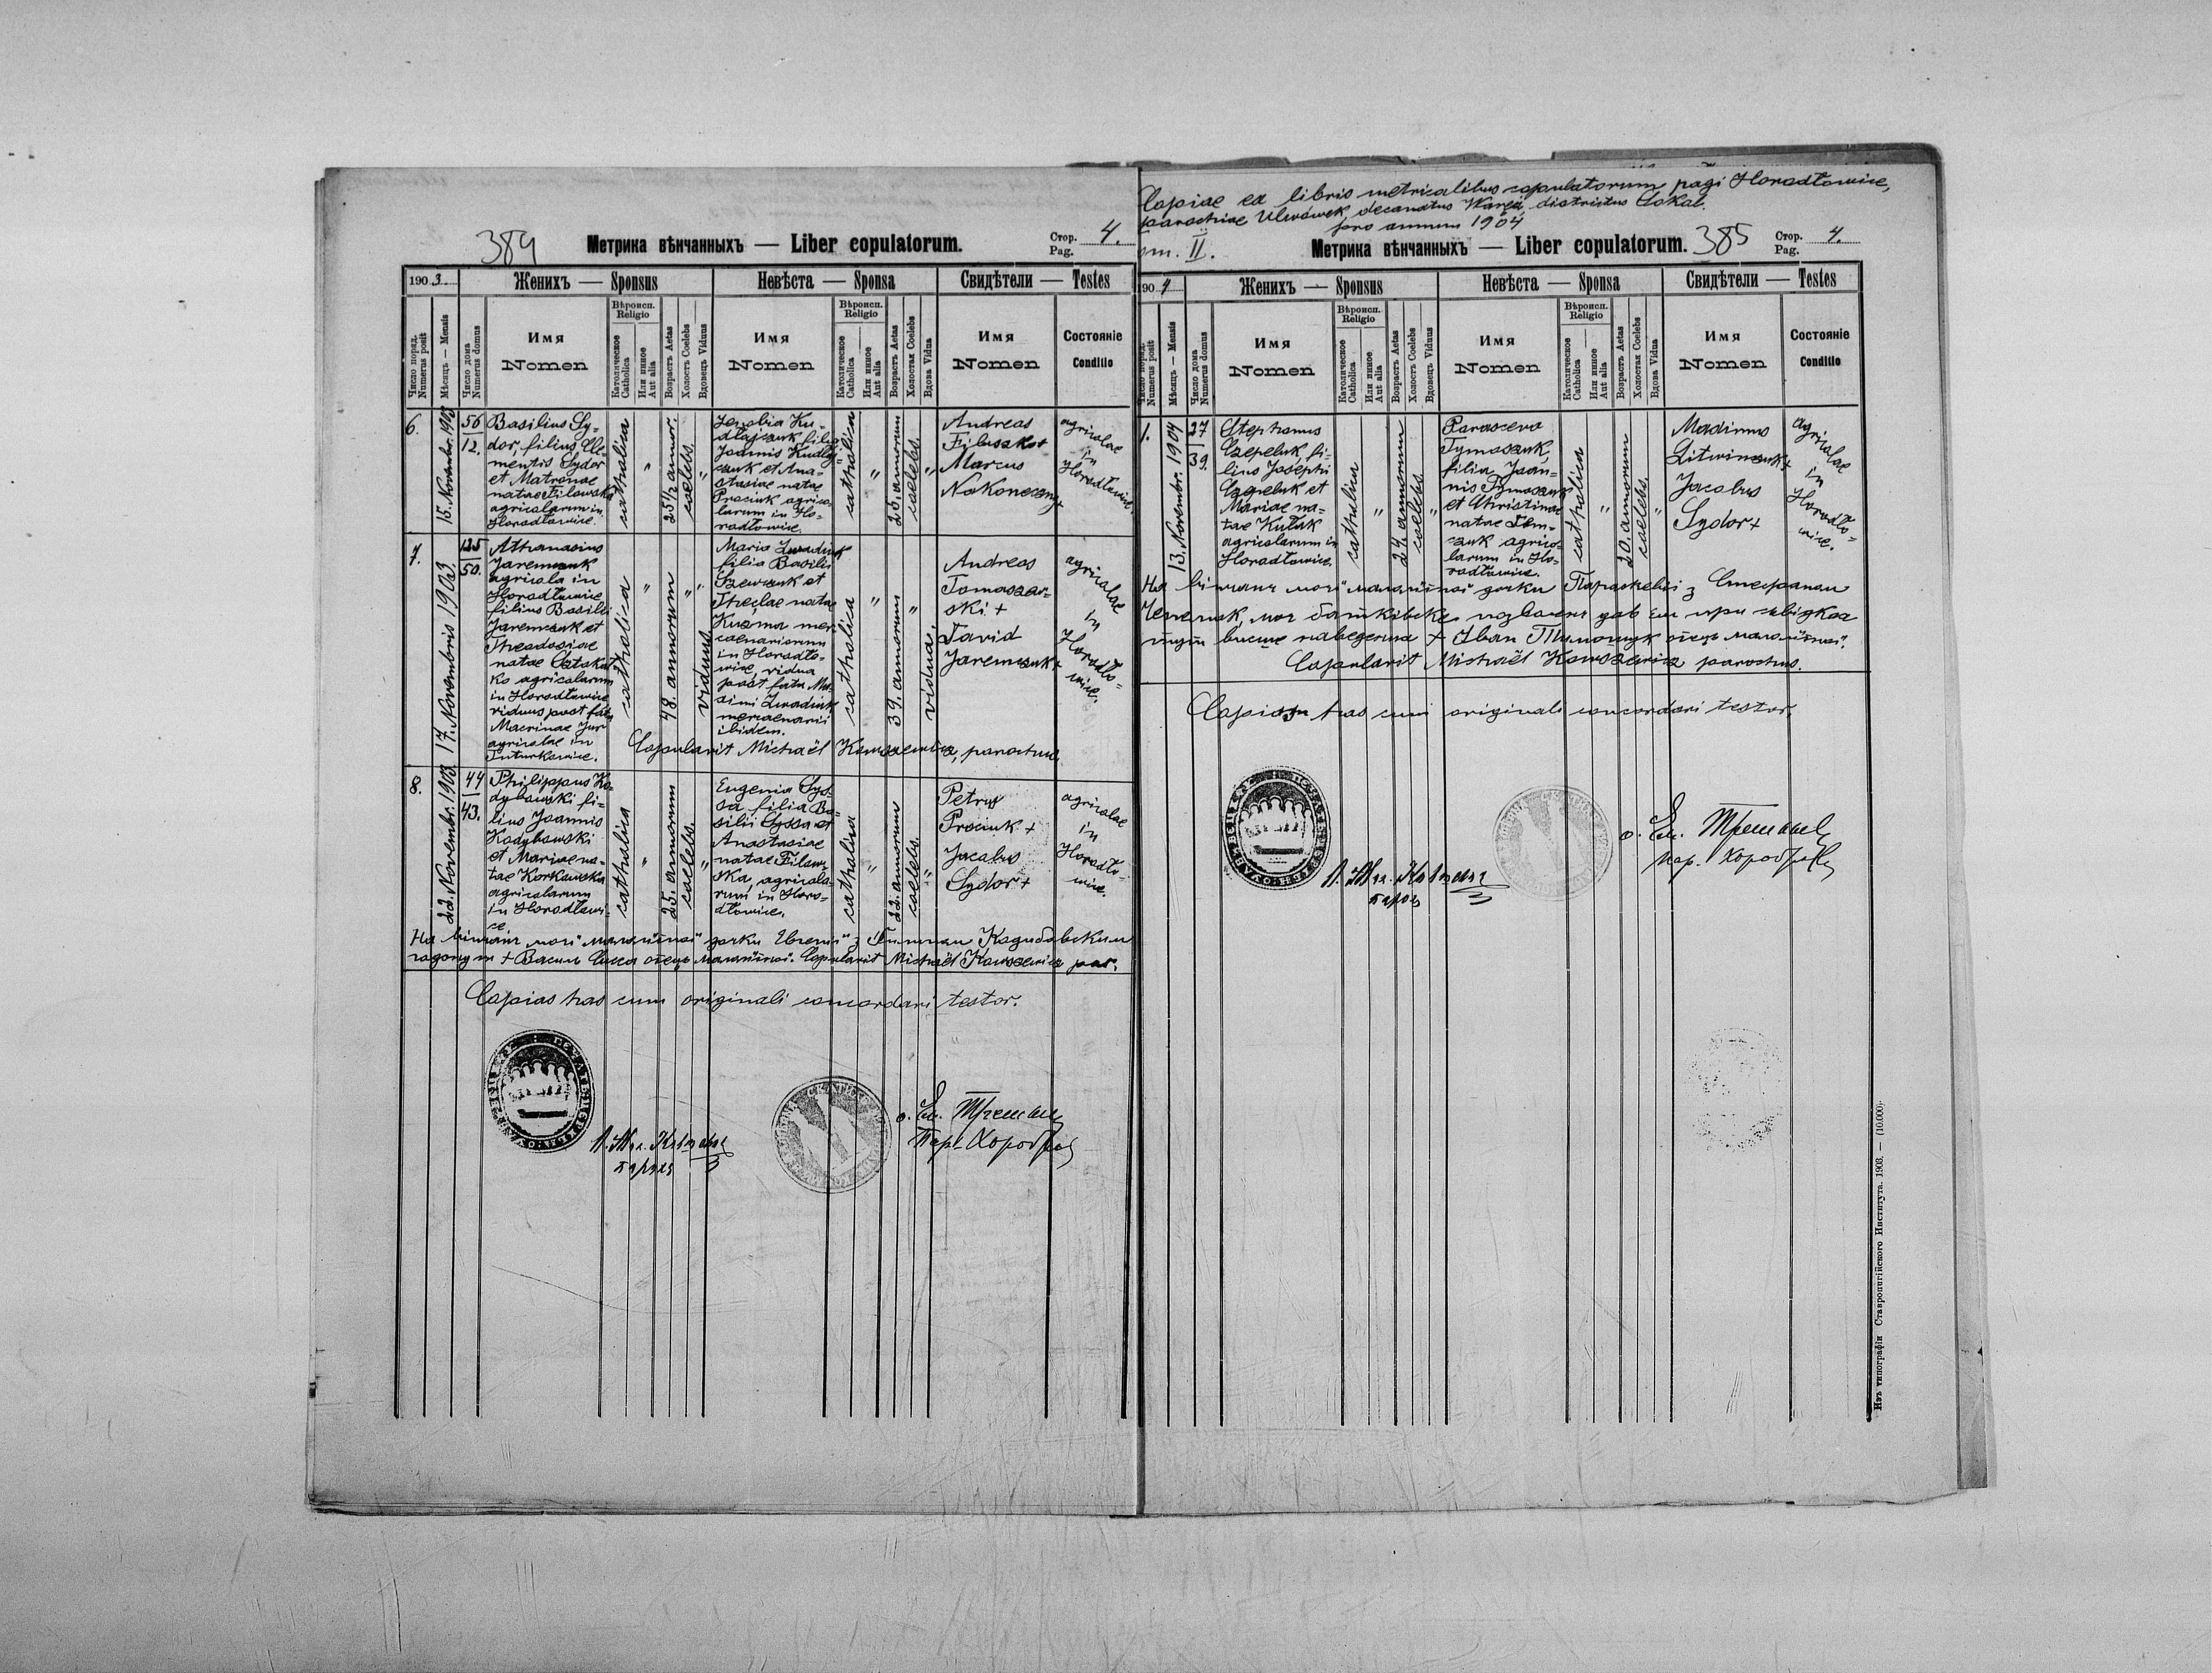 384
Метрика вѣнчанныхъ — Liber copulatorum.
Стор.
Pag.
4.
190 3
Женихъ — Sponsus
Невѣста — Sponsa
Свидѣтели — Testes
Число поряд.
Numerus posit
Мѣсяцъ — Mensis
Число дома
Numerus domus
Имя
Nomen
Вѣроисп.
Religio
Католическое
Catholica
Или инное
Aut alia
Возрастъ Aetas
Холостъ Coelebs
Вдовецъ Viduus
Имя
Nomen
Вѣроисп.
Religio
Католическое
Catholica
Или инное
Aut alia
Возрастъ Aetas
Холостая Coelebs
Вдова Vidua
Имя
Nomen
Состояніе
Conditio
6.
15. Novembr. 1903
56
12.
Basilius Sy=
dor, filius Cle=
mentis Sydor
et Matronae
natae Filowska
agricolarum in
Horodłowice.
catholica
"
25 1/2 annor.
coelebs.
"
Ku=
dłajczuk filia
Joannis Kudłaj=
czuk et Ana=
stasiae natae
Prociuk agrico=
larum in Ho=
rodłowice.
catholica
"
25. annorum
coelebs.
"
Andreas
+
Marcus
Nakoneczny +
agricolae
in
Horodłowice.
7.
17. Novembris 1903.
125
50.
Athanasius
Jaremczuk
agricola in
Horodłowice
filius Basilii
Jaremczuk et
Theodosiae
natae
agricolarum
in Horodłowice
viduus post fata
Macrinae Jur
agricolae in
catholica
"
48. annorum
viduus
"
Maria
filia Basilii
Szewczuk et
Theclae natae
Kuzma mer=
cenariorum
in Horodło=
wice, vidua
post fata Ma=
ximi
mercenarii
ibidem.
catholica
"
39. annorum
vidua.
"
Andreas
Tomaszew=
ski +
David
Jaremczuk +
agricolae
in
Horodło=
wice.
Copulavit Michaël Kowszewicz, parochus.
8.
22. Novembr. 1903
44
43.
Philippus Ko=
dybowski fi=
lius Joannis
Kodybowski
et Mariae na=
tae Korkowska
agricolarum
in Horodłowi=
ce
catholica
"
25. annorum
coelebs.
"
Eugenia Sys=
sa filia Ba=
silii Syssa et
Anastasiae
natae Filow=
ska, agricola=
rum in Horo=
dłowice.
catholica
"
22. annorum
coelebs.
"
Petrus
Prociuk +
Jacobus
Sydor +
agricolae
in
Horodło=
wice.
На вінчанє моєї малолїтної дочки Евгенії з Филипом Кодибовским
+ Василь Сисса отець малолїтної. Copulavit Michaël Kowszewicz par.
Copias has cum originali concordari testor.
385
Copiae ex libris metricalibus copulatorum pagi Horodłowice,
parochiae Ulwówek, decanatus Waręż, districtus Sokal.
pro annum 1904
Tom. II.
Метрика вѣнчанныхъ — Liber copulatorum.
Стор.
Pag.
4.
190 4
Женихъ — Sponsus
Невѣста — Sponsa
Свидѣтели — Testes
Число поряд.
Numerus posit
Мѣсяцъ — Mensis
Число дома
Numerus domus
Имя
Nomen
Вѣроисп.
Religio
Католическое
Catholica
Или инное
Aut alia
Возрастъ Aetas
Холостъ Coelebs
Вдовецъ Viduus
Имя
Nomen
Вѣроисп.
Religio
Католическое
Catholica
Или инное
Aut alia
Возрастъ Aetas
Холостая Coelebs
Вдова Vidua
Имя
Nomen
Состояніе
Conditio
1.
13. Novembr. 1904
27
39.
Stephanus
Czepeluk fi=
lius Josephi
Czepeluk et
Mariae na=
tae Kułak
agricolarum in
Horodłowice.
catholica
"
24. annorum
coelebs.
"
Parasceva
Tymoszuk
filia Joan=
nis Tymoszuk
et Christinae
natae Dem=
czuk agrico=
larum in Ho=
rodłowice.
catholica
"
20. annorum
coelebs.
"
Maximus
Litwinczuk +
Jacobus
Sydor +
agricolae
in
Horodło=
wice.
На вінчанє моєї малолїтної дочки Параскевії з Стефаном
Чепелюк, моє батківске позволенє дав єм при свідках
висше наведених + Іван Тимощук отець малолїтної.
Copulavit Michaël Kowszewicz parochus.
Copiam has cum originali concordari testor.
Изъ типографіи Ставропигійского Института. 1903. — (10.000).